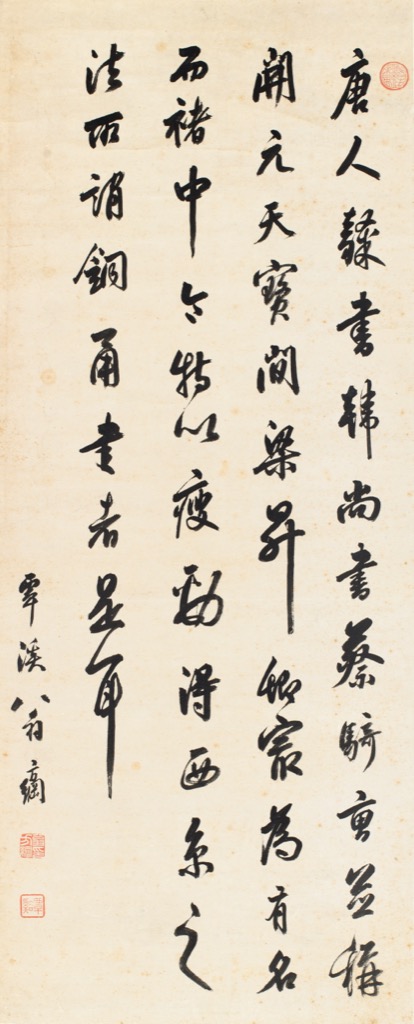 唐人隸書韓尚書蔡騎曹並稱
開元天寶間梁昇卿最為有名
而褚中令特以瘦勁得西京之
法所謂銅甬書者是耳
覃溪八翁綱